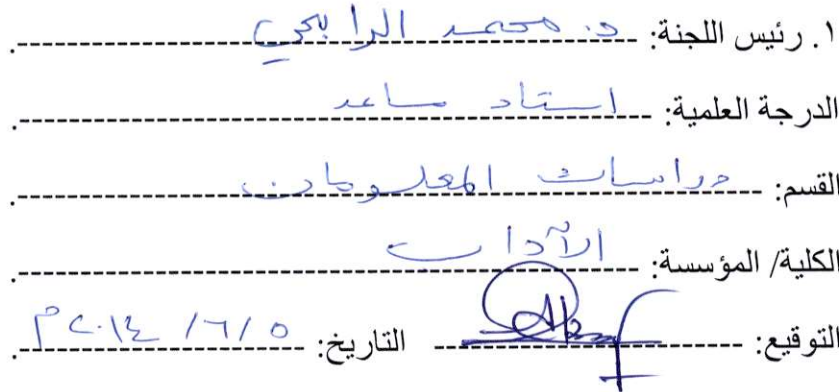 ١. رئيس اللجنة: د. محمد الرابحي
الدرجة العلمية: استاذ مساعد
القسم: دراسات المعلومات
الكلية/ المؤسسة: الآداب
التوقيع: التاريخ: ٥/٦/٢٠١٤م